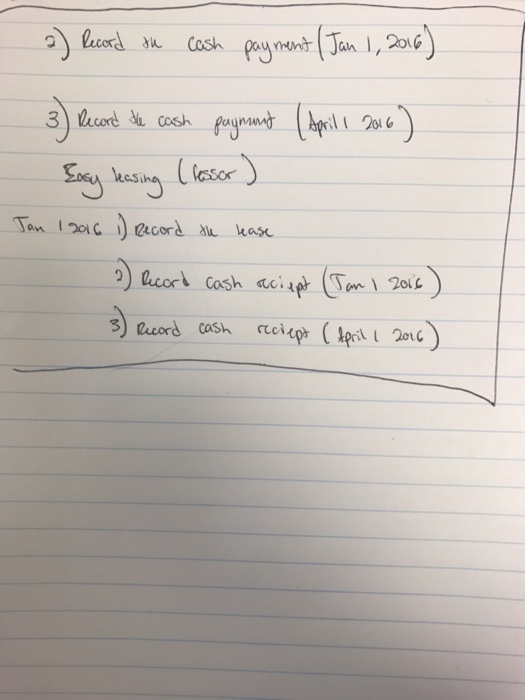 2) Record the cash payment (Jan 1, 2016)
3) Record the cash payment (April 1 2016)
Easy leasing (lessor)
Jan 1 2016 1) Record the lease
2) Record cash reciept (Jan 1 2016)
3) Record cash reciept (April 1 2016)